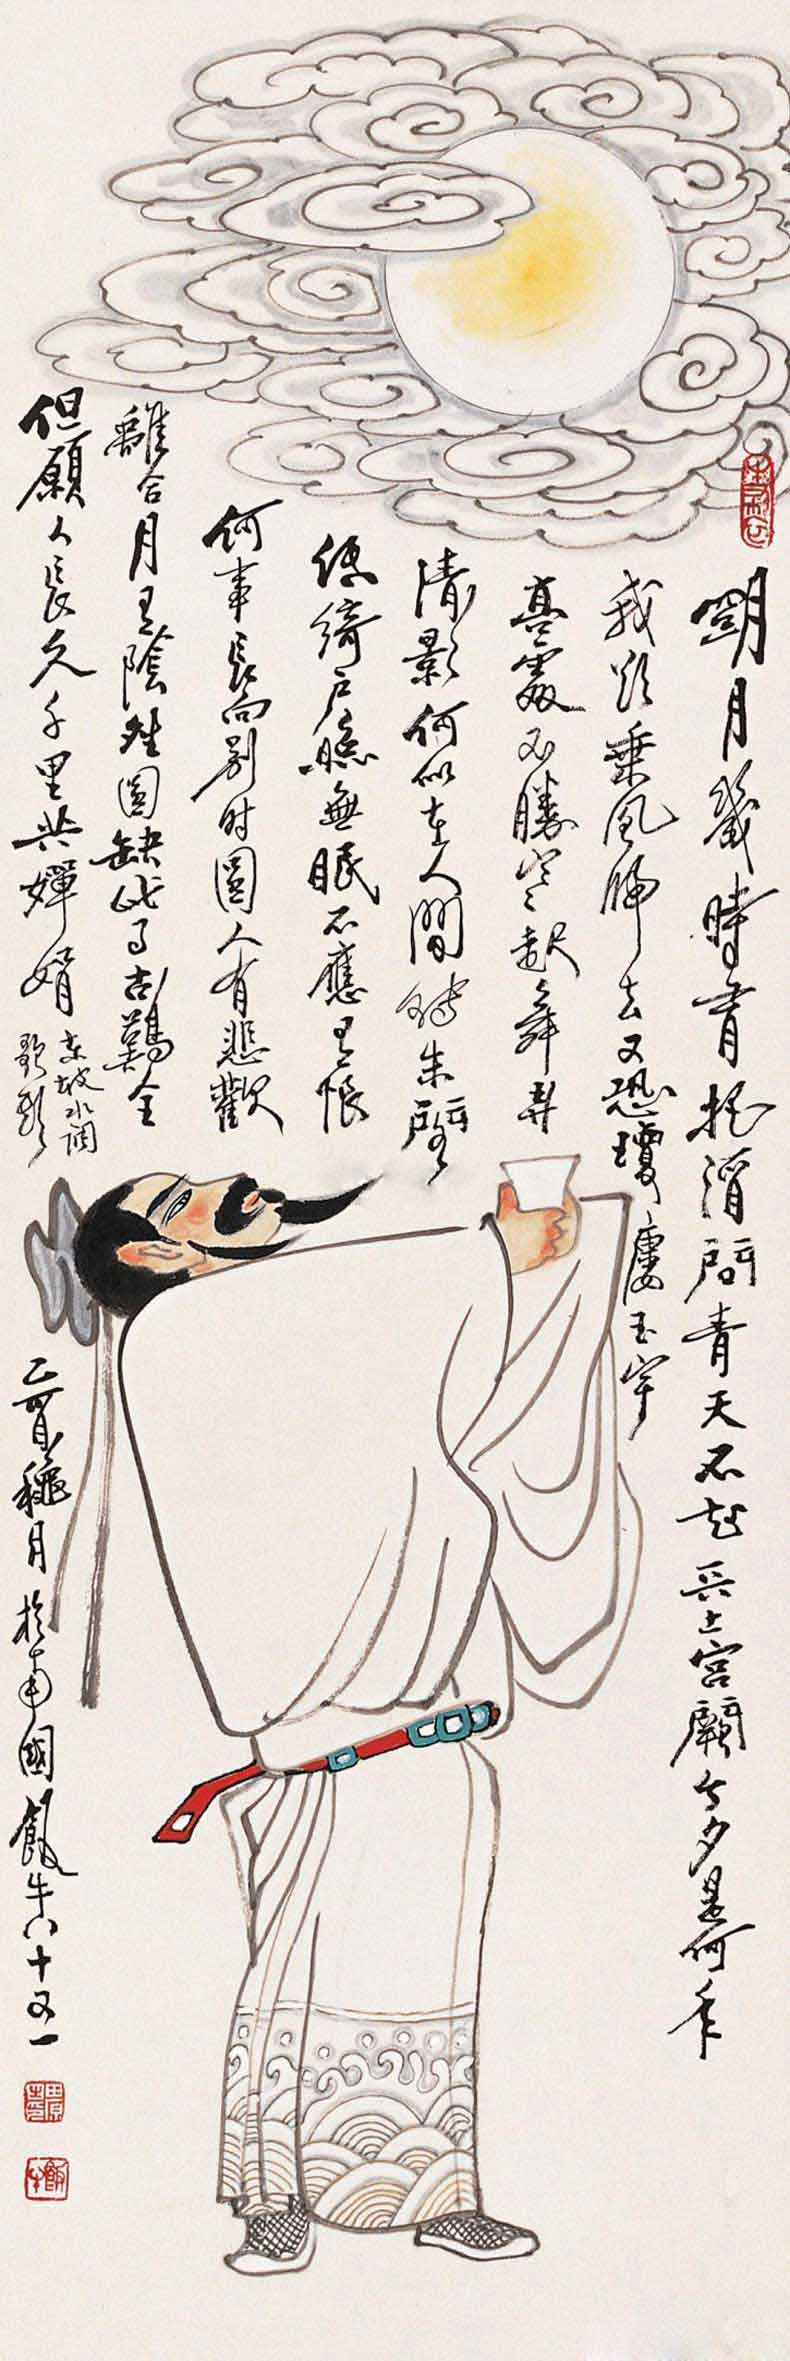 明月幾時有把酒問青天不知天上宮闕今夕是何年
我欲乘風歸去又恐瓊樓玉宇
高處不勝寒起舞弄
清影何似在人間轉朱閣
低綺戶照無眠不應有恨
何事長向別時圓人有悲歡
離合月有陰晴圓缺此事古難全
但願人長久千里共嬋娟
東坡水調
歌頭
乙酉龝月於南國飯牛八十又一
田原
飯牛